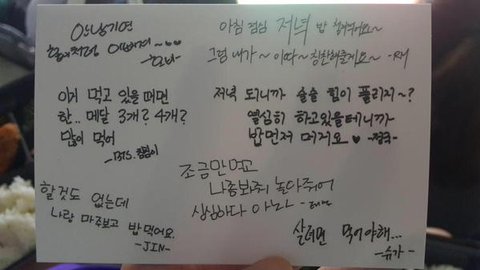 안남기면
힘이처럼 이뻐져~
아침 점심 저녁 밥 챙겨먹어요~
그럼 내가~ 이따~ 칭찬해줄게요~ -RM
이거 먹고 있을때면
한.. 메달 3개? 4개?
많이 먹어
-BTS. 침침이
저녁 되니까 슬슬 힘이 풀리지~?
열심히 하고있을테니까
밥먼저 머거요 ♥ -정국-
조금만먹고
나중봐줘 놓아주어
심심하다 아나
할것도 없는데
나랑 마주보고 밥먹어요.
-JIN-
살려면 먹어야해...
-슈가-